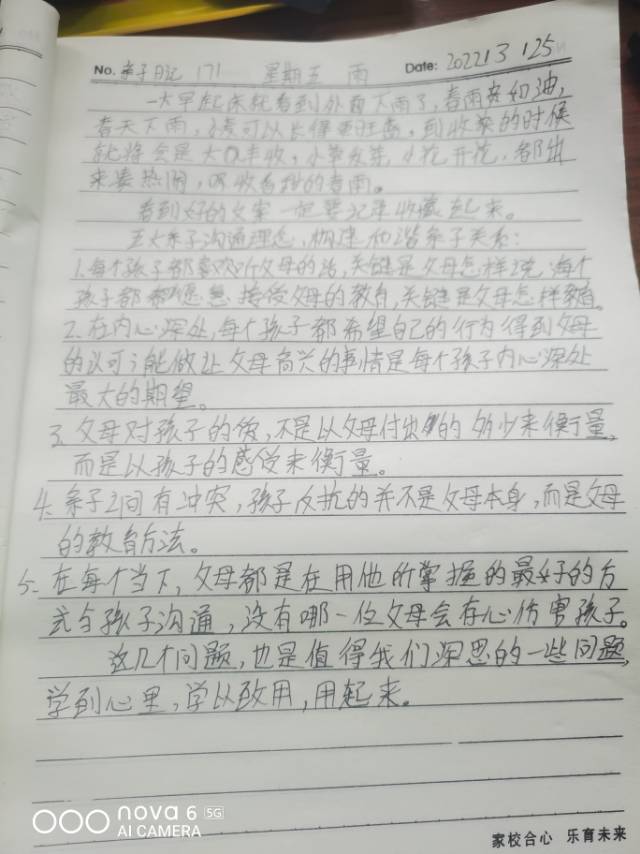 No. 亲子日记 171 星期五 雨 Date: 2022 1 3 1 25
一大早起床就看到外面下雨了,春雨贵如油,
春天下雨,可以长得更旺盛,到收获的时候
就将会是大丰收,小草发芽,小花开花,都出
来凑热闹,吸收着甜的春雨。
看到好的文案一定要记录收藏起来。
五大亲子沟通理念,构建和谐亲子关系:
1.每个孩子都喜欢听父母的话,关键是父母怎样说,每个
孩子都都愿意接受父母的教育,关键是父母怎样教育。
2.在内心深处,每个孩子都希望自己的行为得到父母
的认可;能做让父母高兴的事情是每个孩子内心深处
最大的期望。
3.父母对孩子的爱,不是以父母付出的多少来衡量,
而是以孩子的感受来衡量。
4.亲子之间有冲突,孩子反抗的并不是父母本身,而是父母
的教育方法。
5.在每个当下,父母都是在用他所掌握的最好的方
式与孩子沟通,没有哪一位父母会存心伤害孩子。
这几个问题,也是值得我们深思的一些问题,
学到心里,学以致用,用起来。
nova 6 5G
AI CAMERA
家校合心 乐育未来